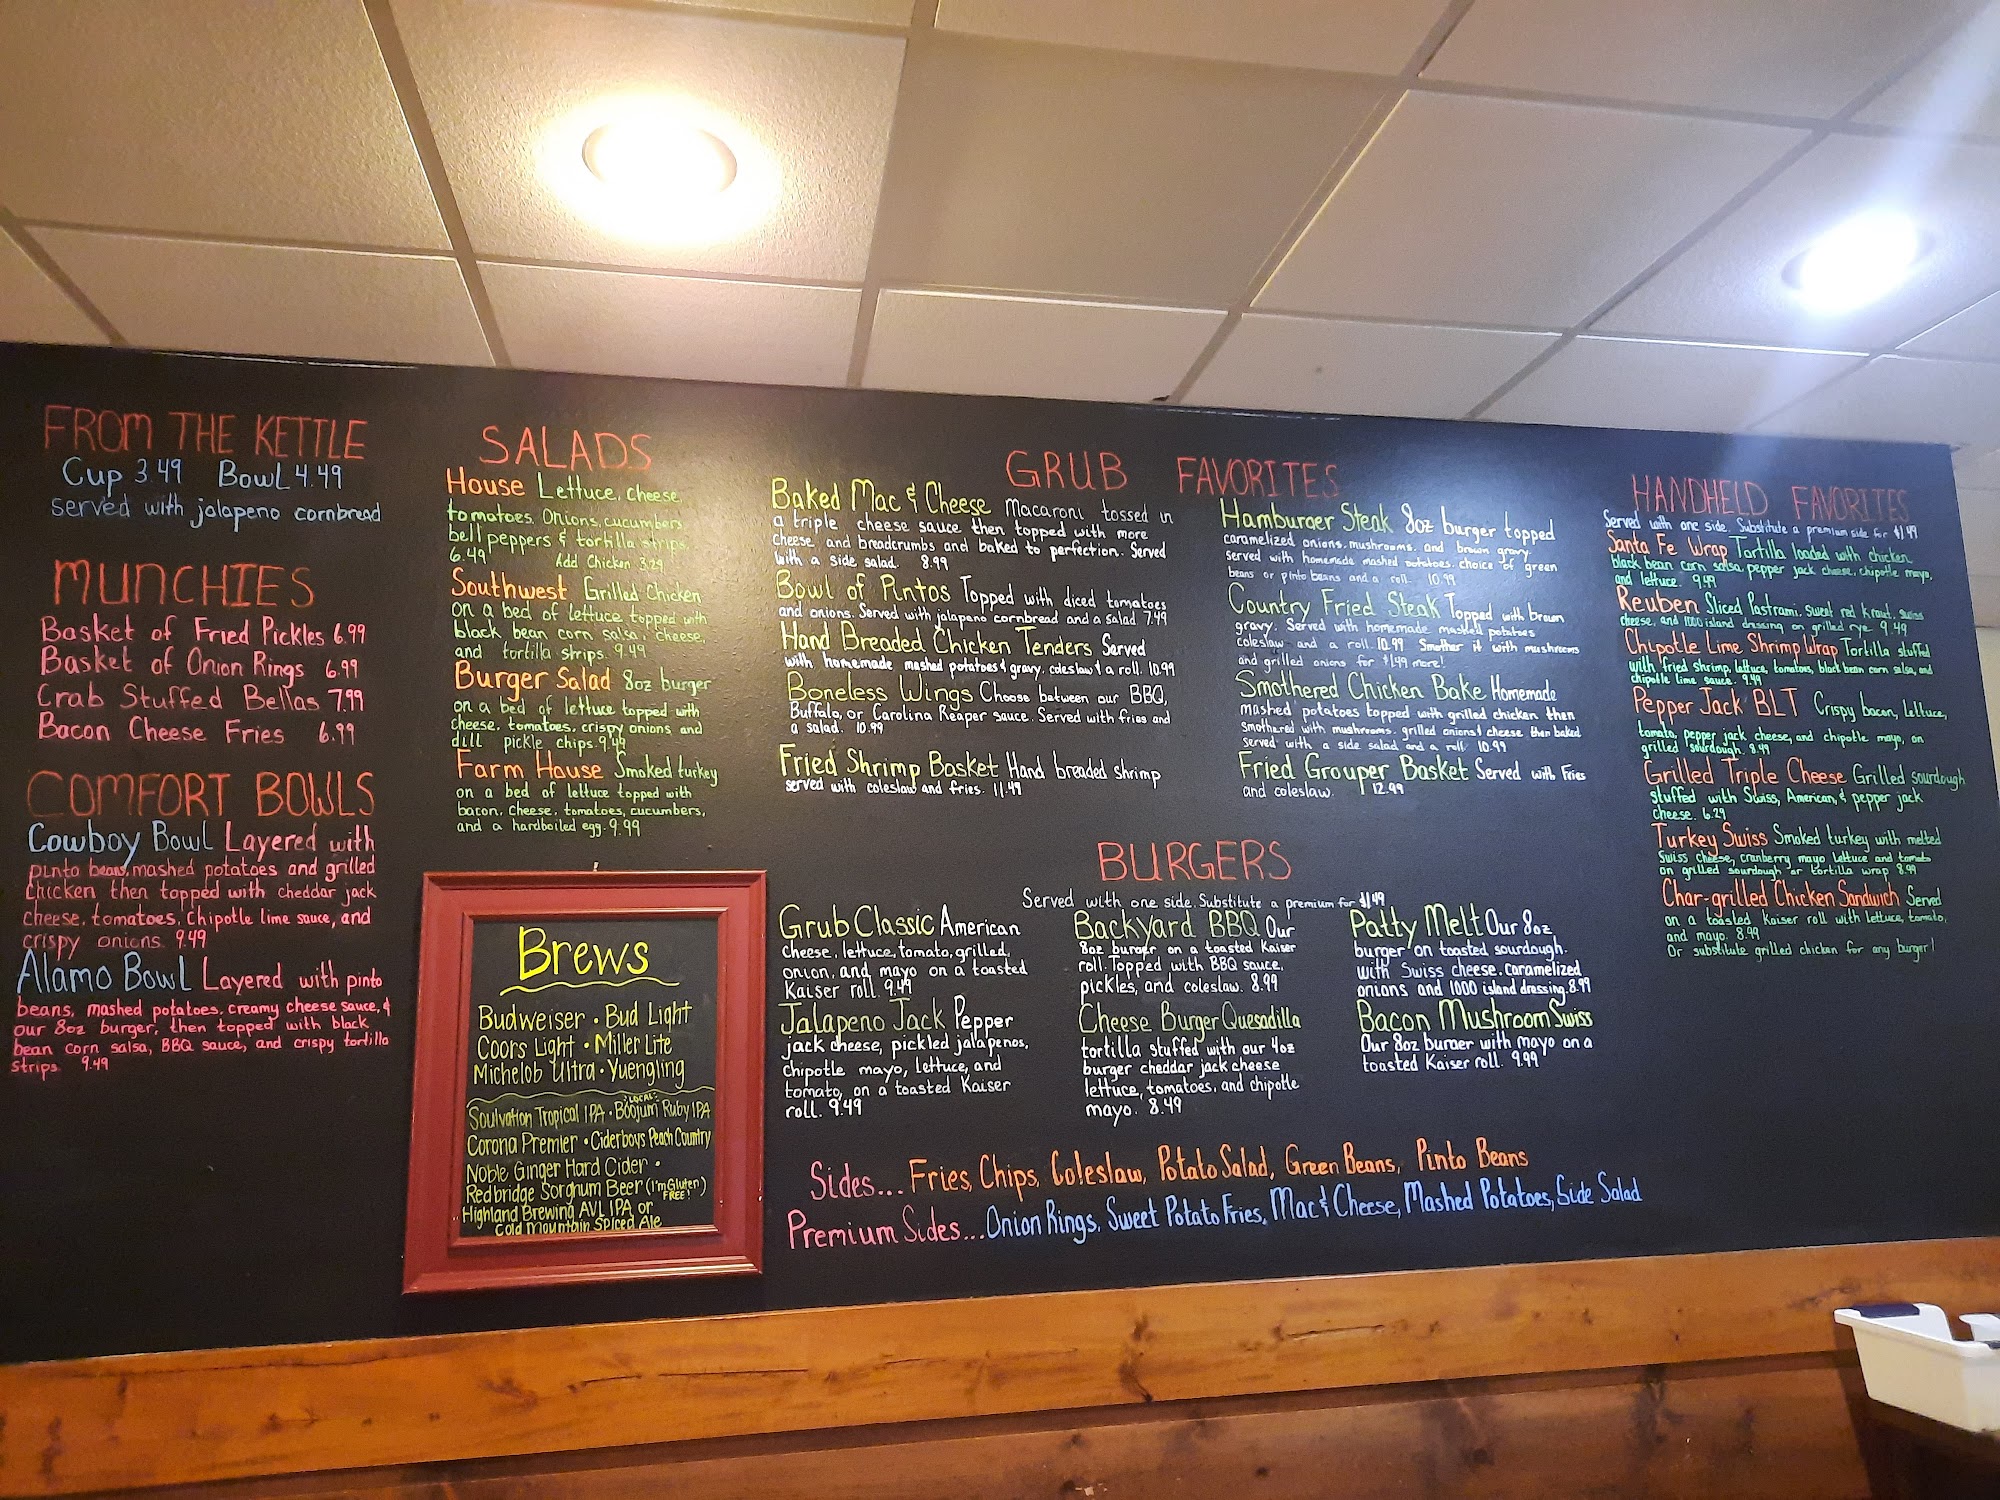 FROM THE KETTLE
Cup 3.49 Bowl 4.49
served with jalapeno cornbread
MUNCHIES
Basket of Fried Pickles 6.99
Basket of Onion Rings 6.99
Crab Stuffed Bellas 7.99
Bacon Cheese Fries 6.99
COMFORT BOWLS
Cowboy Bowl Layered with
pinto beans, mashed potatoes and grilled
chicken then topped with cheddar jack
cheese, tomatoes, chipotle lime sauce, and
crispy onions. 9.49
Alamo Bowl Layered with pinto
beans, mashed potatoes, creamy cheese sauce, &
our 8oz burger, then topped with black
bean corn salsa, BBQ sauce, and crispy tortilla
strips. 9.49
SALADS
House Lettuce, cheese,
tomatoes, onions, cucumbers
bell peppers & tortilla strips.
6.49 Add Chicken 3.29
Southwest Grilled Chicken
on a bed of lettuce topped with
black bean corn salsa, cheese,
and tortilla strips. 9.49
Burger Salad 8oz burger
on a bed of lettuce topped with
cheese, tomatoes, crispy onions and
dill pickle chips. 9.49
Farm House Smoked turkey
on a bed of lettuce topped with
bacon, cheese, tomatoes, cucumbers,
and a hardboiled egg. 9.99
Brews
Budweiser • Bud Light
Coors Light • Miller Lite
Michelob Ultra • Yuengling
LOCAL:
Soulvation Tropical IPA • Boojum Ruby IPA
Corona Premier • Ciderboys Peach Country
Noble Ginger Hard Cider •
Redbridge Sorghum Beer (I'm Gluten FREE!)
Highland Brewing AVL IPA or
Cold Mountain Spiced Ale
GRUB FAVORITES
Baked Mac & Cheese Macaroni tossed in
a triple cheese sauce then topped with more
cheese and breadcrumbs and baked to perfection. Served
with a side salad. 8.99
Bowl of Pintos Topped with diced tomatoes
and onions. Served with jalapeno cornbread and a salad 7.49
Hand Breaded Chicken Tenders Served
with homemade mashed potatoes & gravy, coleslaw & a roll. 10.99
Boneless Wings Choose between our BBQ,
Buffalo, or Carolina Reaper sauce. Served with fries and
a salad. 10.99
Fried Shrimp Basket Hand breaded shrimp
served with coleslaw and fries. 11.49
Hamburger Steak 8oz burger topped
caramelized onions, mushrooms, and brown gravy.
served with homemade mashed potatoes, choice of green
beans or pinto beans and a roll. 10.99
Country Fried Steak Topped with brown
gravy. Served with homemade mashed potatoes
coleslaw and a roll 10.99 Smother it with mushrooms
and grilled onions for $1.49 more!
Smothered Chicken Bake Homemade
mashed potatoes topped with grilled chicken then
smothered with mushrooms, grilled onions & cheese then baked
Served with a side salad and a roll 10.99
Fried Grouper Basket Served with Fries
and coleslaw. 12.99
BURGERS
Served with one side. Substitute a premium for $1.49
Grub Classic American
Cheese, lettuce, tomato, grilled,
onion, and mayo on a toasted
Kaiser roll. 9.49
Jalapeno Jack Pepper
jack cheese, pickled jalapenos,
chipotle mayo, lettuce, and
tomato, on a toasted Kaiser
roll. 9.49
Backyard BBQ Our
8oz burger on a toasted Kaiser
roll. Topped with BBQ sauce,
pickles, and coleslaw. 8.99
Cheese Burger Quesadilla
tortilla stuffed with our 4oz
burger cheddar jack cheese
lettuce, tomatoes, and chipotle
mayo. 8.49
Patty Melt Our 8oz
burger on toasted sourdough.
with Swiss cheese, caramelized
onions and 1000 island dressing. 8.99
Bacon Mushroom Swiss
Our 8oz burger with mayo on a
toasted Kaiser roll. 9.99
Sides... Fries, Chips, Coleslaw, Potato Salad, Green Beans, Pinto Beans
Premium Sides... Onion Rings, Sweet Potato Fries, Mac & Cheese, Mashed Potatoes, Side Salad
HANDHELD FAVORITES
Served with one side. Substitute a premium side for $1.49
Santa Fe Wrap Tortilla loaded with chicken,
black bean corn salsa, pepper jack cheese, chipotle mayo,
and lettuce. 9.49
Reuben Sliced Pastrami, sweet red kraut, swiss
cheese, and 1000 island dressing on grilled rye 9.49
Chipotle Lime Shrimp Wrap Tortilla stuffed
with fried shrimp, lettuce, tomatoes, black bean corn salsa, and
chipotle lime sauce. 9.49
Pepper Jack BLT Crispy bacon, lettuce,
tomato, pepper jack cheese, and chipotle mayo, on
grilled sourdough. 8.49
Grilled Triple Cheese Grilled sourdough
stuffed with Swiss, American, & pepper jack
cheese. 6.29
Turkey Swiss Smoked turkey with melted
Swiss cheese, cranberry mayo lettuce and tomato
on grilled sourdough or tortilla wrap 8.99
Char-grilled Chicken Sandwich Served
on a toasted Kaiser roll with lettuce, tomato,
and mayo. 8.99
Or substitute grilled chicken for any burger!